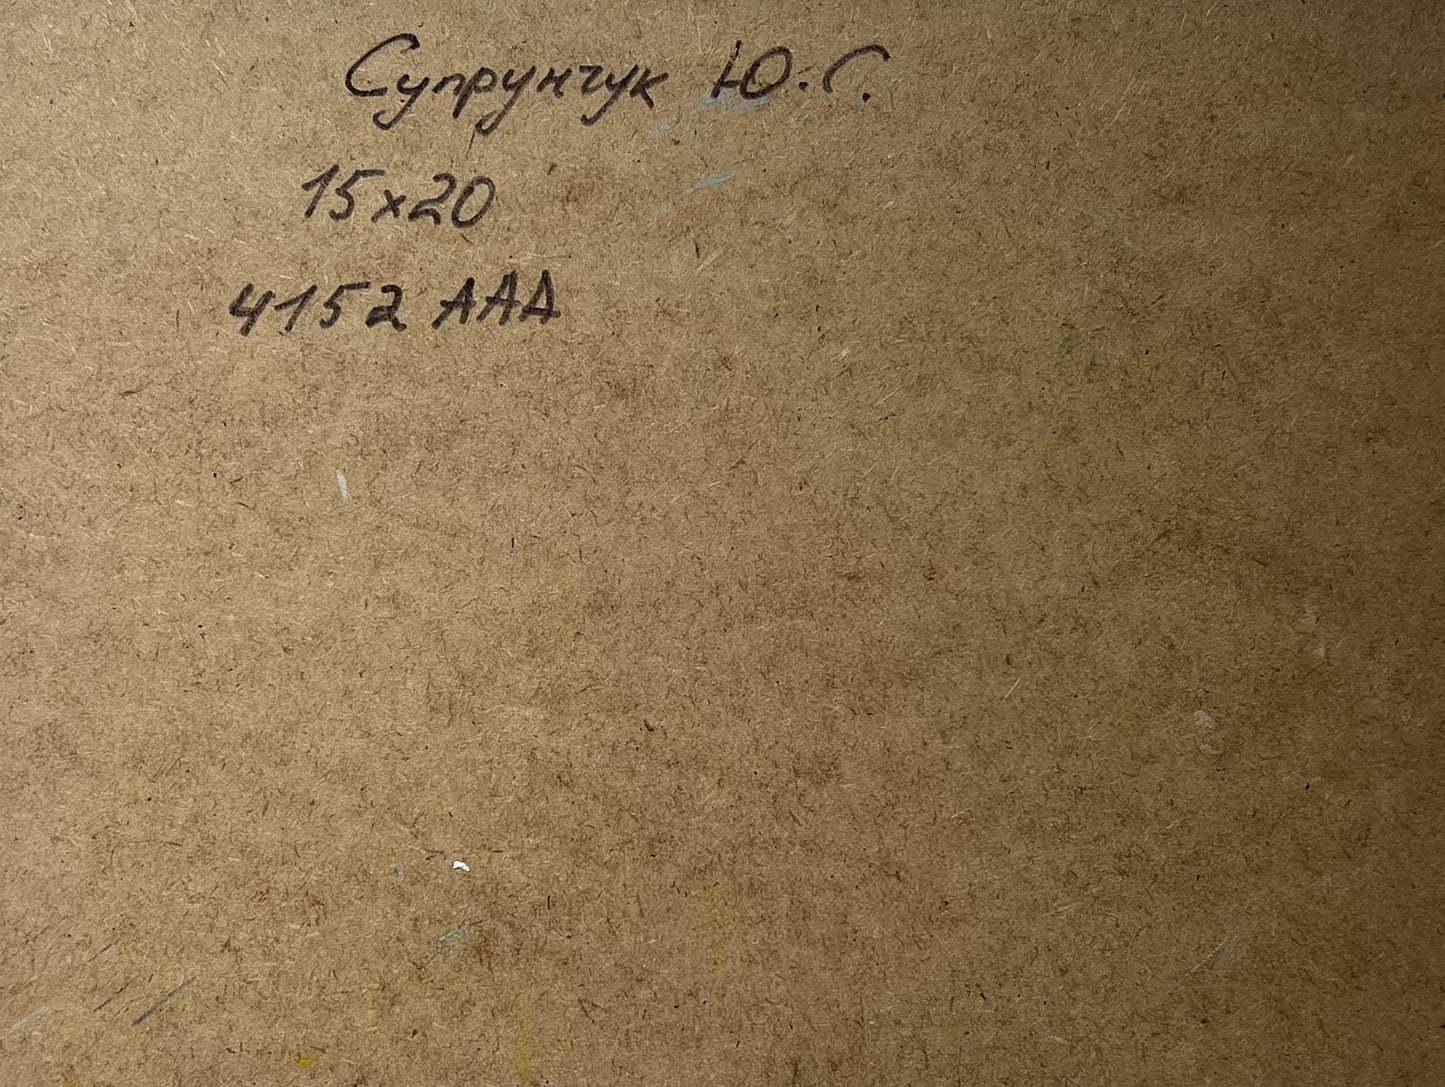 Супрунчук Ю.С.
15x20
4152 AAA